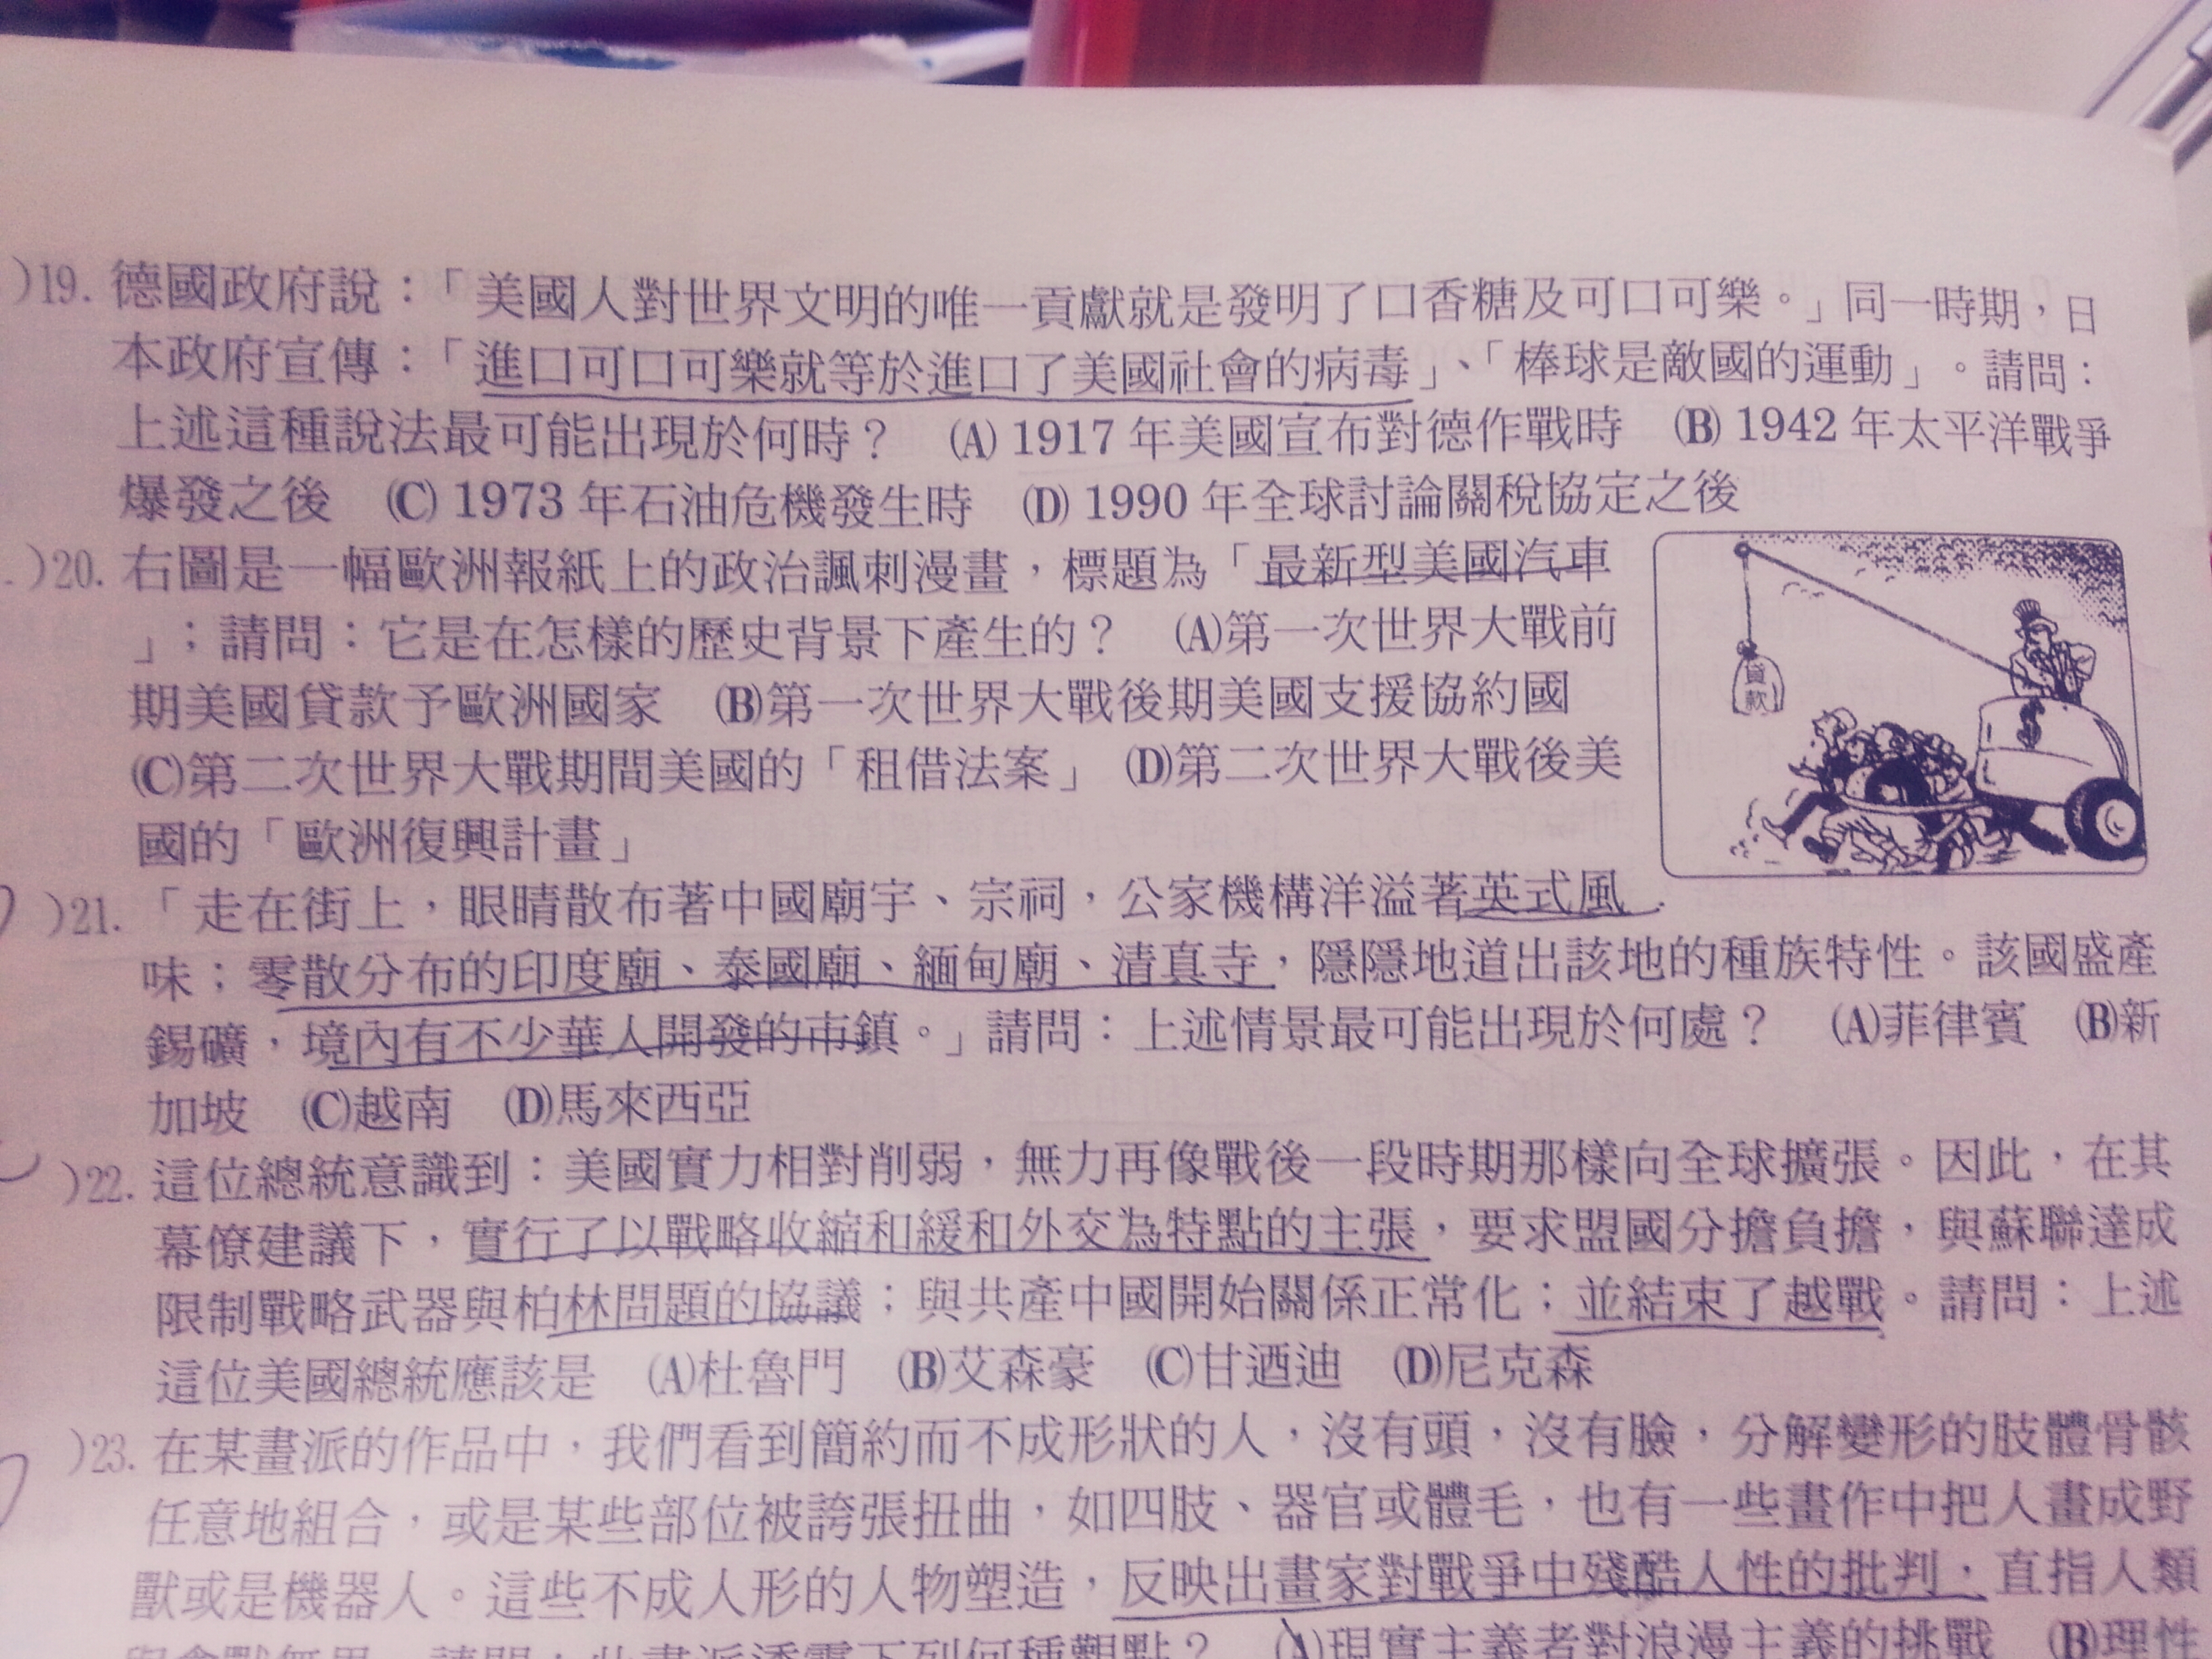 )19. 德國政府說：「美國人對世界文明的唯一貢獻就是發明了口香糖及可口可樂。」同一時期，日
本政府宣傳：「進口可口可樂就等於進口了美國社會的病毒」、「棒球是敵國的運動」。請問：
上述這種說法最可能出現於何時？ (A) 1917 年美國宣布對德作戰時 (B) 1942 年太平洋戰爭
爆發之後 (C) 1973 年石油危機發生時 (D) 1990 年全球討論關稅協定之後
)20. 右圖是一幅歐洲報紙上的政治諷刺漫畫，標題為「最新型美國汽車
」；請問：它是在怎樣的歷史背景下產生的？ (A)第一次世界大戰前
期美國貸款予歐洲國家 (B)第一次世界大戰後期美國支援協約國
(C)第二次世界大戰期間美國的「租借法案」 (D)第二次世界大戰後美
國的「歐洲復興計畫」
貸款
$
)21. 「走在街上，眼睛散布著中國廟宇、宗祠，公家機構洋溢著英式風
味；零散分布的印度廟、泰國廟、緬甸廟、清真寺，隱隱地道出該地的種族特性。該國盛產
錫礦，境內有不少華人開發的市鎮。」請問：上述情景最可能出現於何處？ (A)菲律賓 (B)新
加坡 (C)越南 (D)馬來西亞
)22. 這位總統意識到：美國實力相對削弱，無力再像戰後一段時期那樣向全球擴張。因此，在其
幕僚建議下，實行了以戰略收縮和緩和外交為特點的主張，要求盟國分擔負擔，與蘇聯達成
限制戰略武器與柏林問題的協議；與共產中國開始關係正常化；並結束了越戰。請問：上述
這位美國總統應該是 (A)杜魯門 (B)艾森豪 (C)甘迺迪 (D)尼克森
)23. 在某畫派的作品中，我們看到簡約而不成形狀的人，沒有頭，沒有臉，分解變形的肢體骨骸
任意地組合，或是某些部位被誇張扭曲，如四肢、器官或體毛，也有一些畫作中把人畫成野
獸或是機器人。這些不成人形的人物塑造，反映出畫家對戰爭中殘酷人性的批判，直指人類
請問：此畫派透露下列何種觀點？ (A)現實主義者對浪漫主義的挑戰 (B)理性